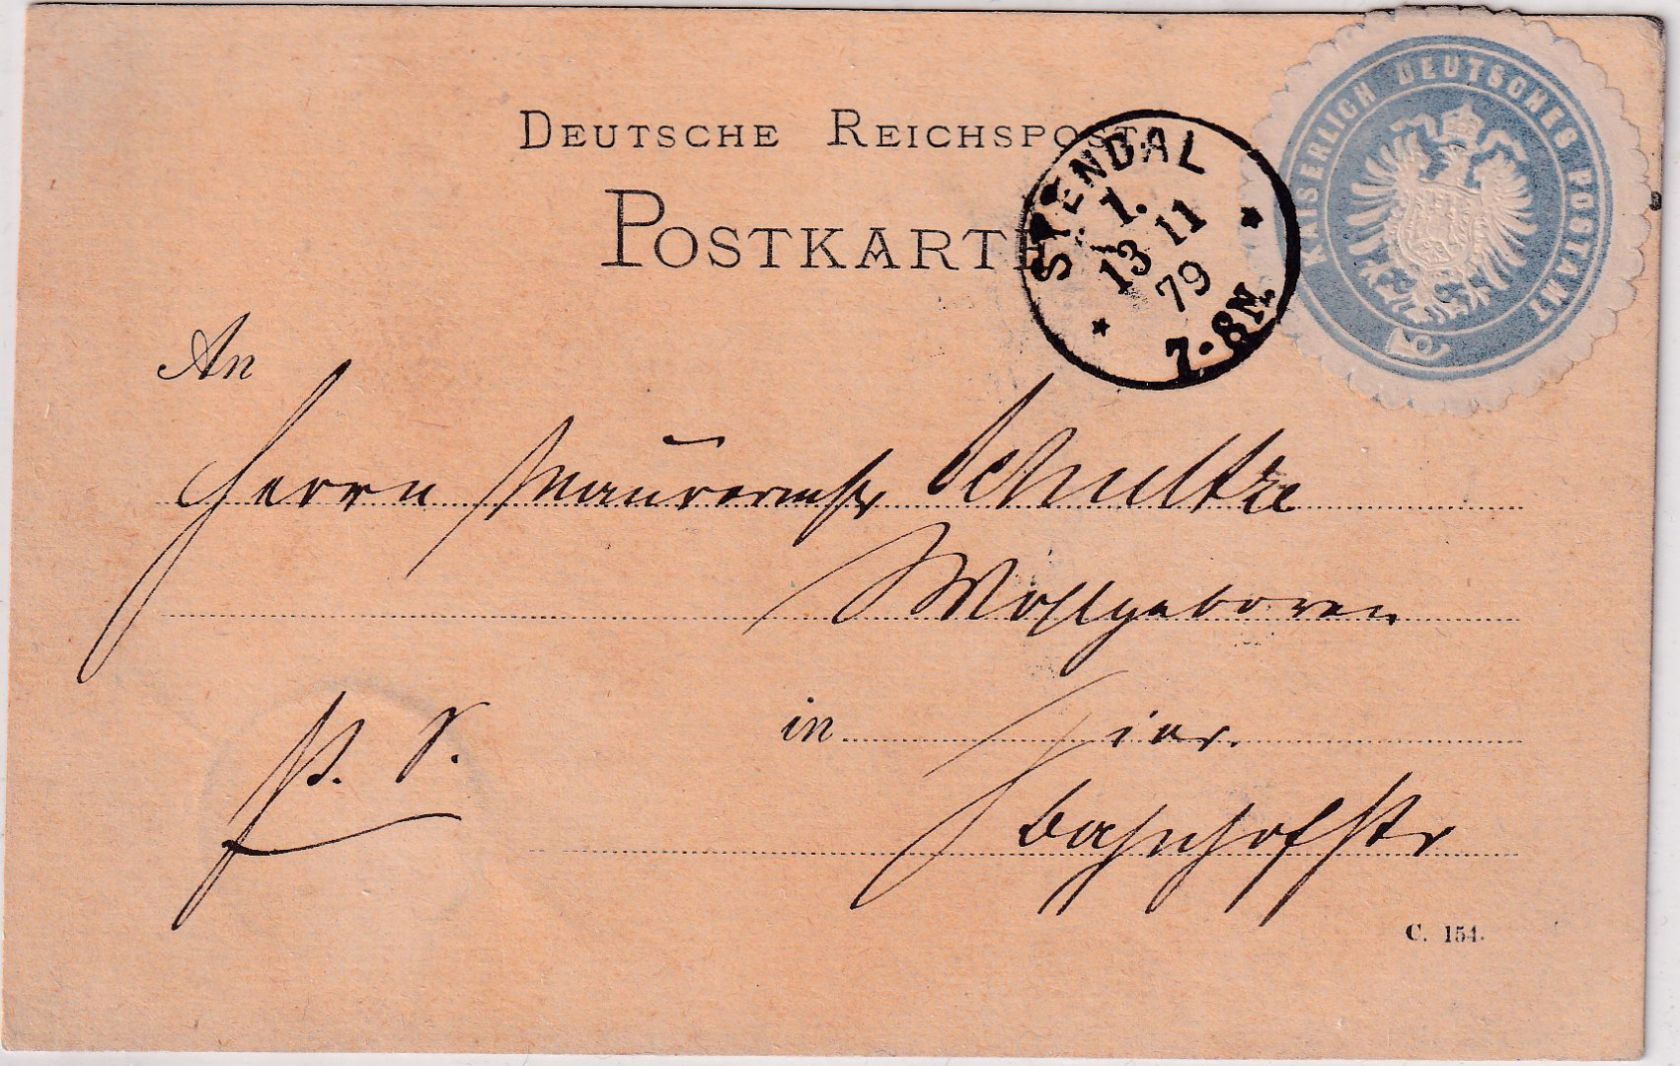 DEUTSCHE REICHSPOST
POSTKARTE
STENDAL
1.
13 11
79
7-8N.
KAISERLICH DEUTSCHES POSTAMT
An
Herrn Maurermstr Schultze
Wohlgeboren
in Hier.
Bahnhofstr
P. S.
C. 154.